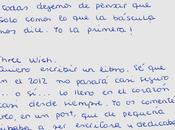 todas dejemos de pensar que
Solo somos lo que la báscula
nos dice. Yo la primera!
Three Wish.
quiero escribir un libro. Sé que
en el 2012 no pasará casi seguro
... o sí... lo llevo en el corazón
casi desde siempre. Yo os comenté
en un post, que de pequeña
a ser escritora y dedicaba